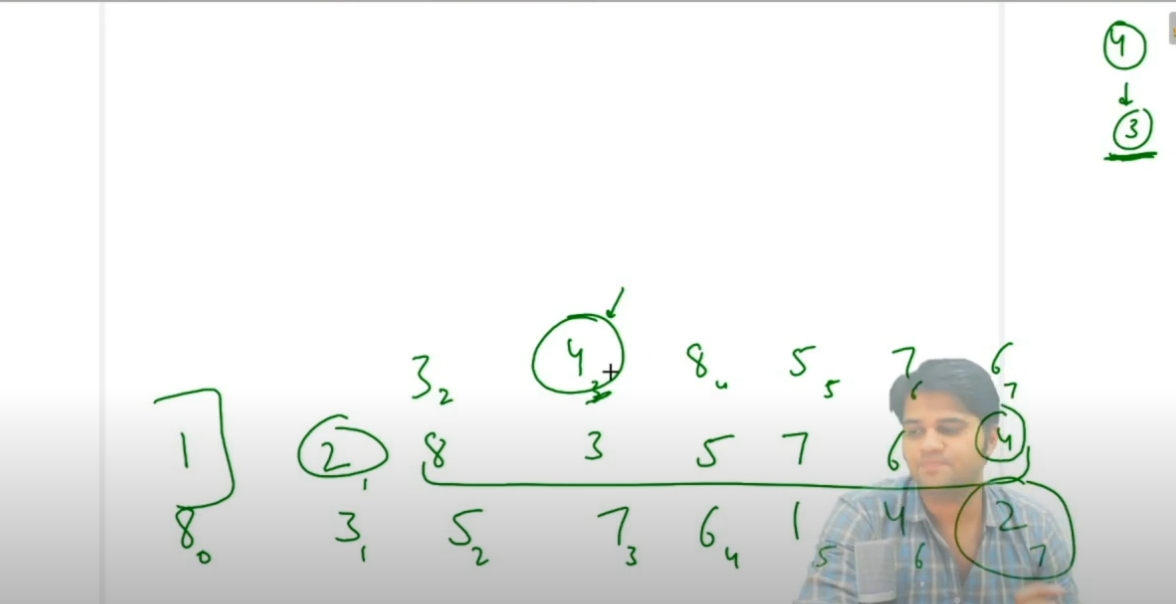 4
3
3₂ 4₃ 8₄ 5₅ 7₆ 6₇
1 2₁ 8 3 5 7 6 4
8₀ 3₁ 5₂ 7₃ 6₄ 1₅ 4₆ 2₇